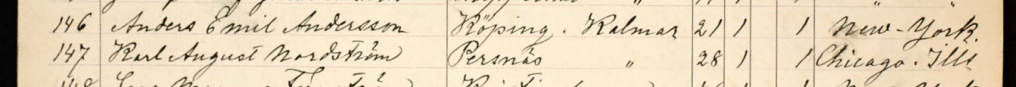 146 Anders Emil Andersson Köping. Kalmar 21 1 1 New-York.
147 Karl August Nordström Persnäs " 28 1 1 Chicago. Ills